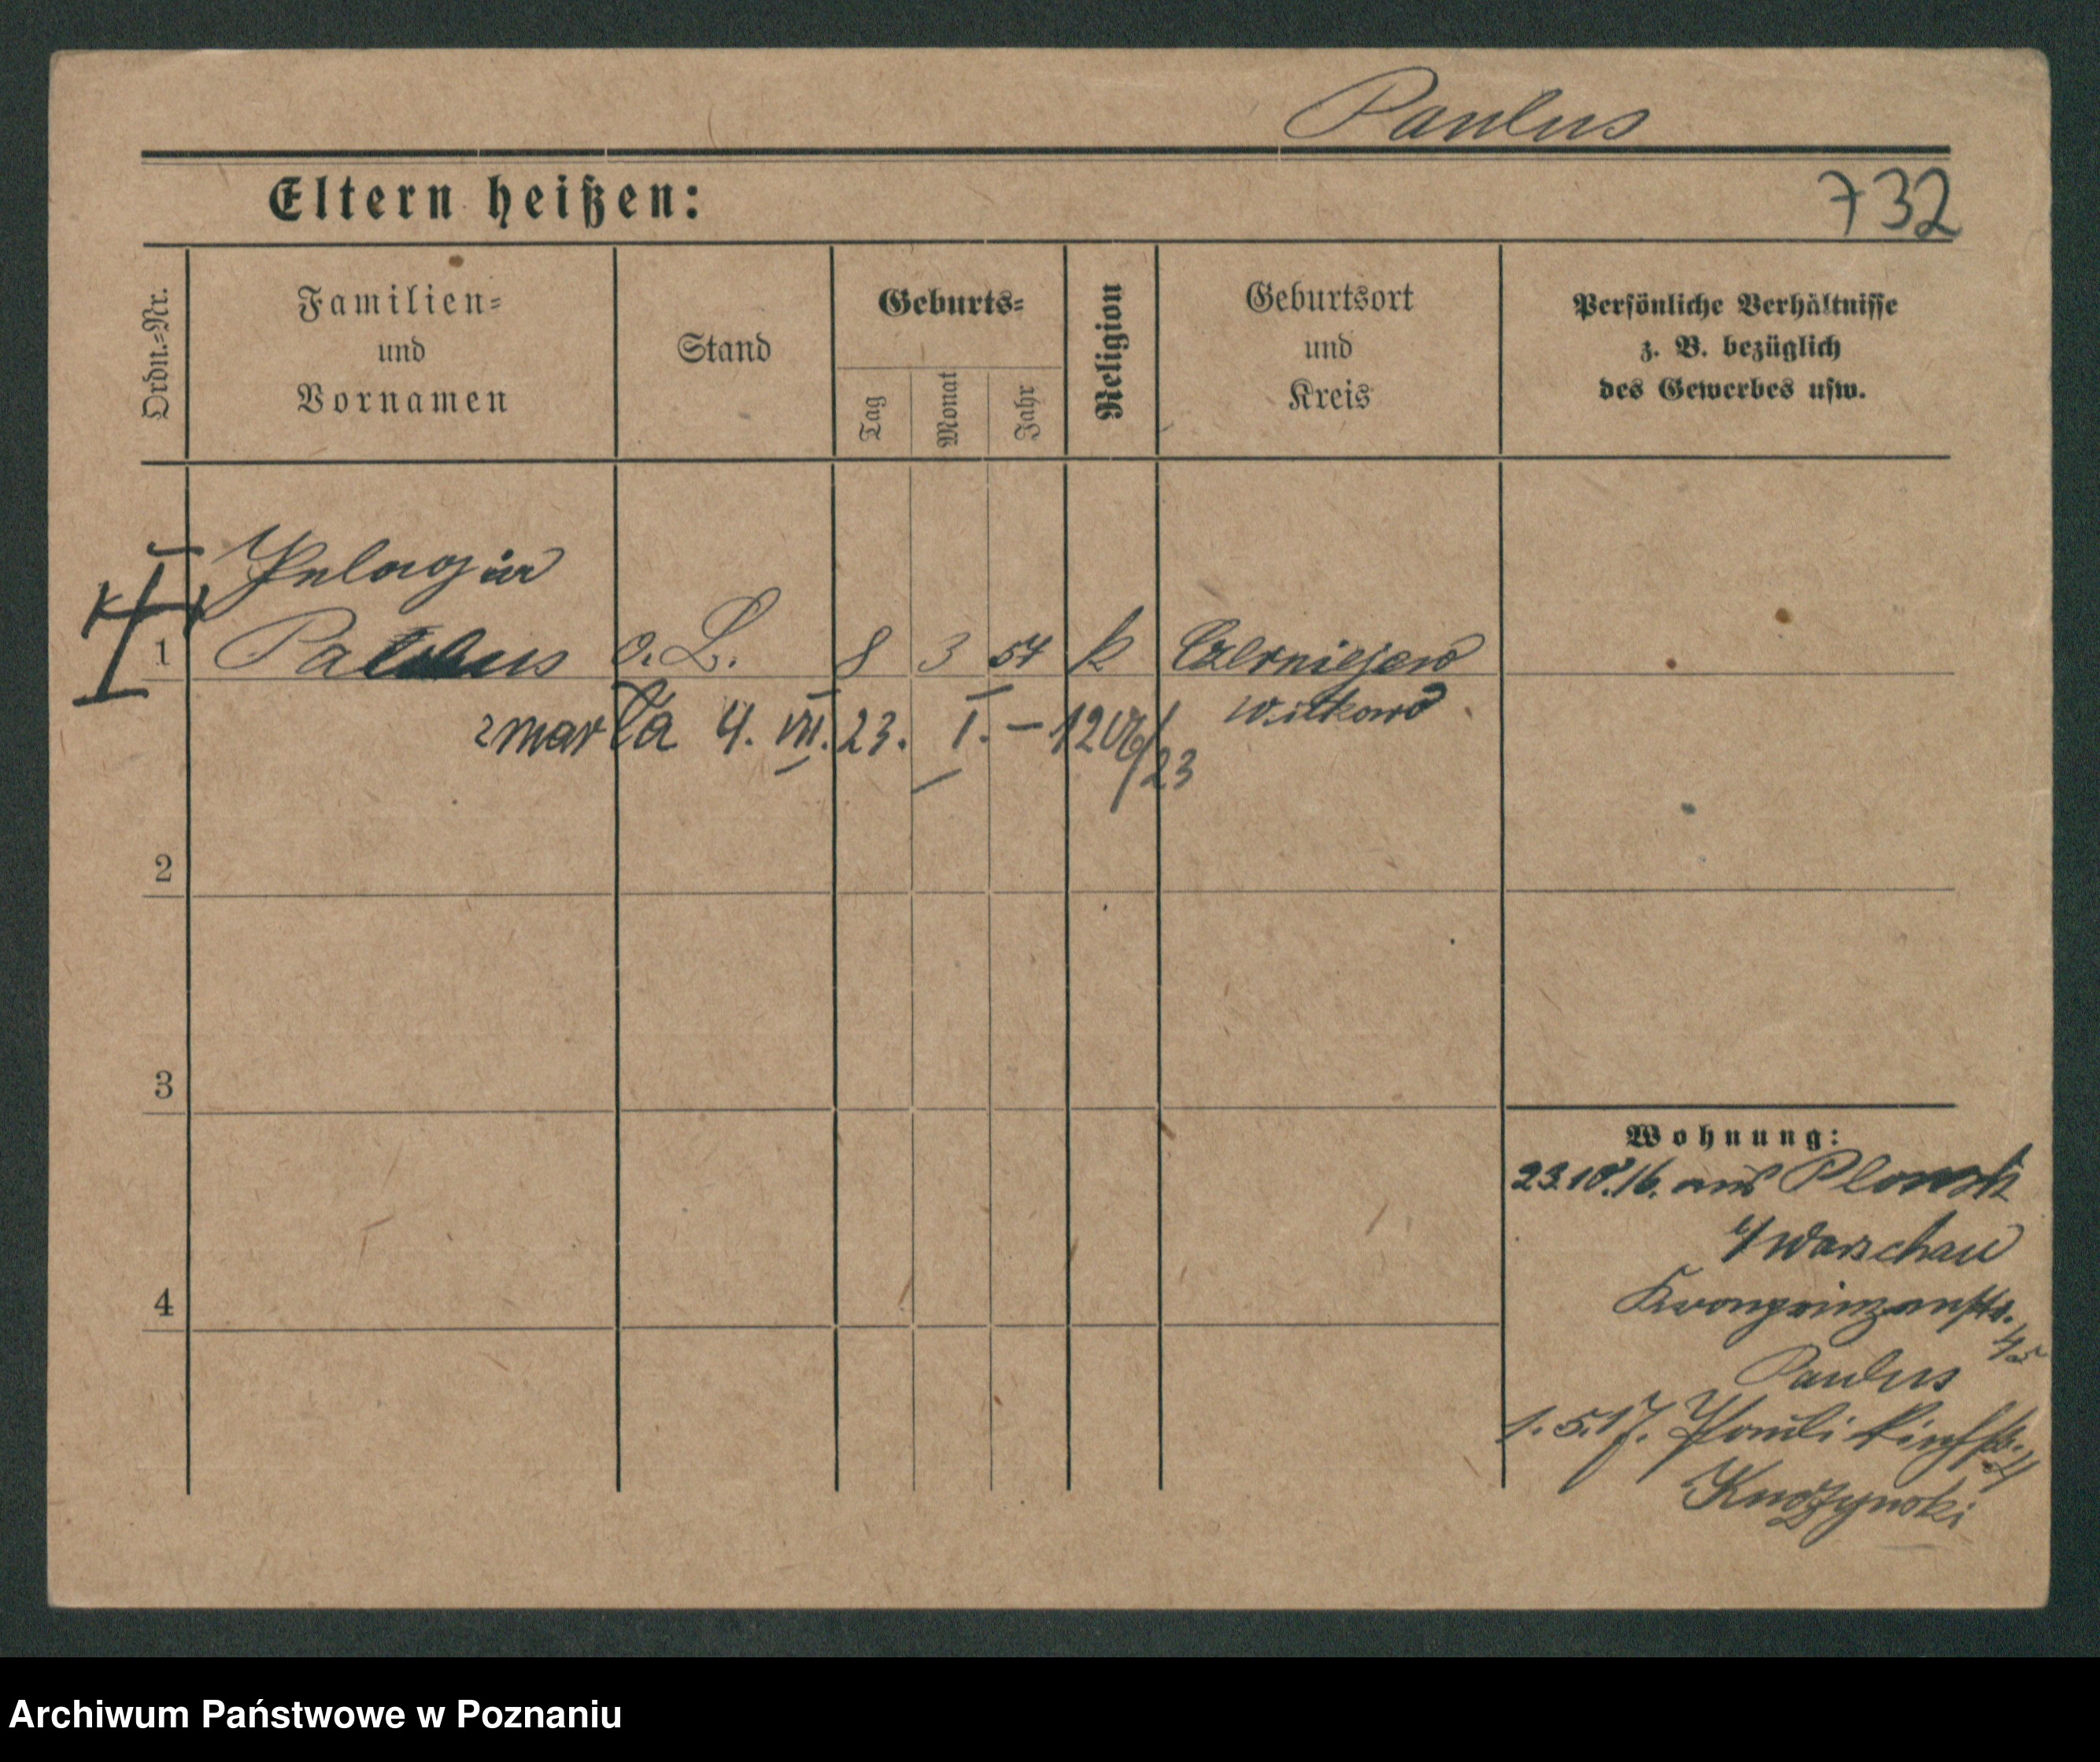 Paulus
Eltern heißen:
732
Ordn.-Nr.
Familien-
und
Vornamen
Stand
Geburts-
Tag
Monat
Jahr
Religion
Geburtsort
und
Kreis
Persönliche Verhältnisse
z. B. bezüglich
des Gewerbes usw.
Pelagia
1 Paulus o. B. 8 3 54 k Czerniejewo
Witkowo
zmarła 4. VII. 23. I. – 1206/23
2
3
4
Wohnung:
23.10.16. aus Plonsk
b/ Warschau
Kronprinzenstr.
Paulus
1.5.17. Paulikirchstr.
Archiwum Państwowe w Poznaniu